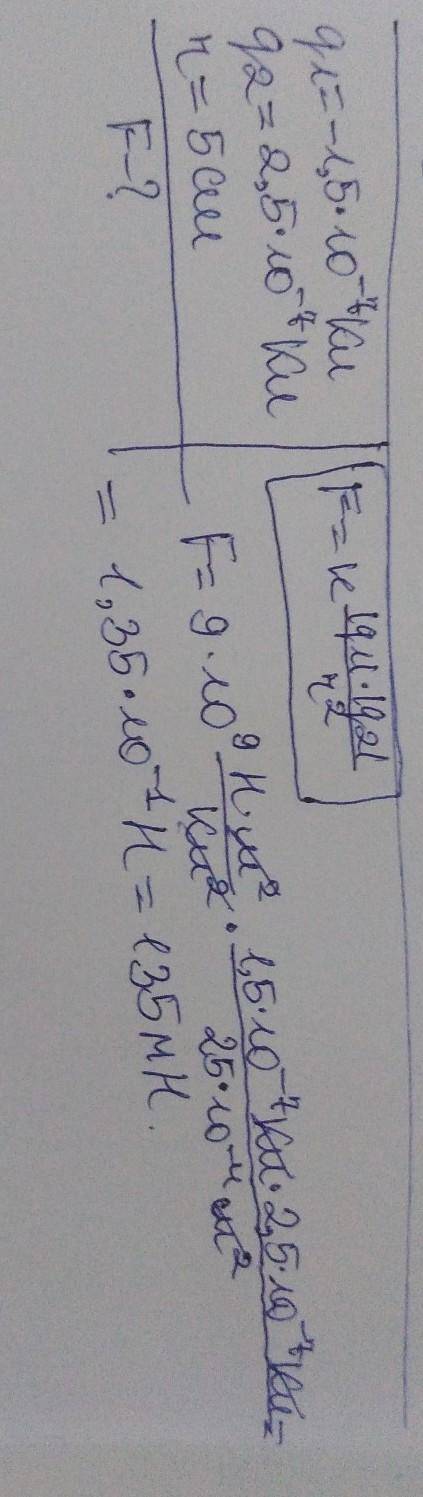 q1=-1,5·10⁻⁷Кл
q2=2,5·10⁻⁷Кл
r=5см
F-?
F=k |q1|·|q2| / r²
F=9·10⁹ Н·м²/Кл² · 1,5·10⁻⁷Кл·2,5·10⁻⁷Кл / 25·10⁻⁴м² =
=1,35·10⁻¹Н=135мН.